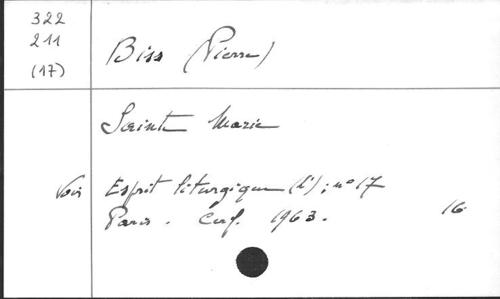 322
211
(17)
Biss (Pierre)
Sainte Marie
Voir Esprit liturgique (l') ; n° 17
Paris. Cerf. 1963. 16